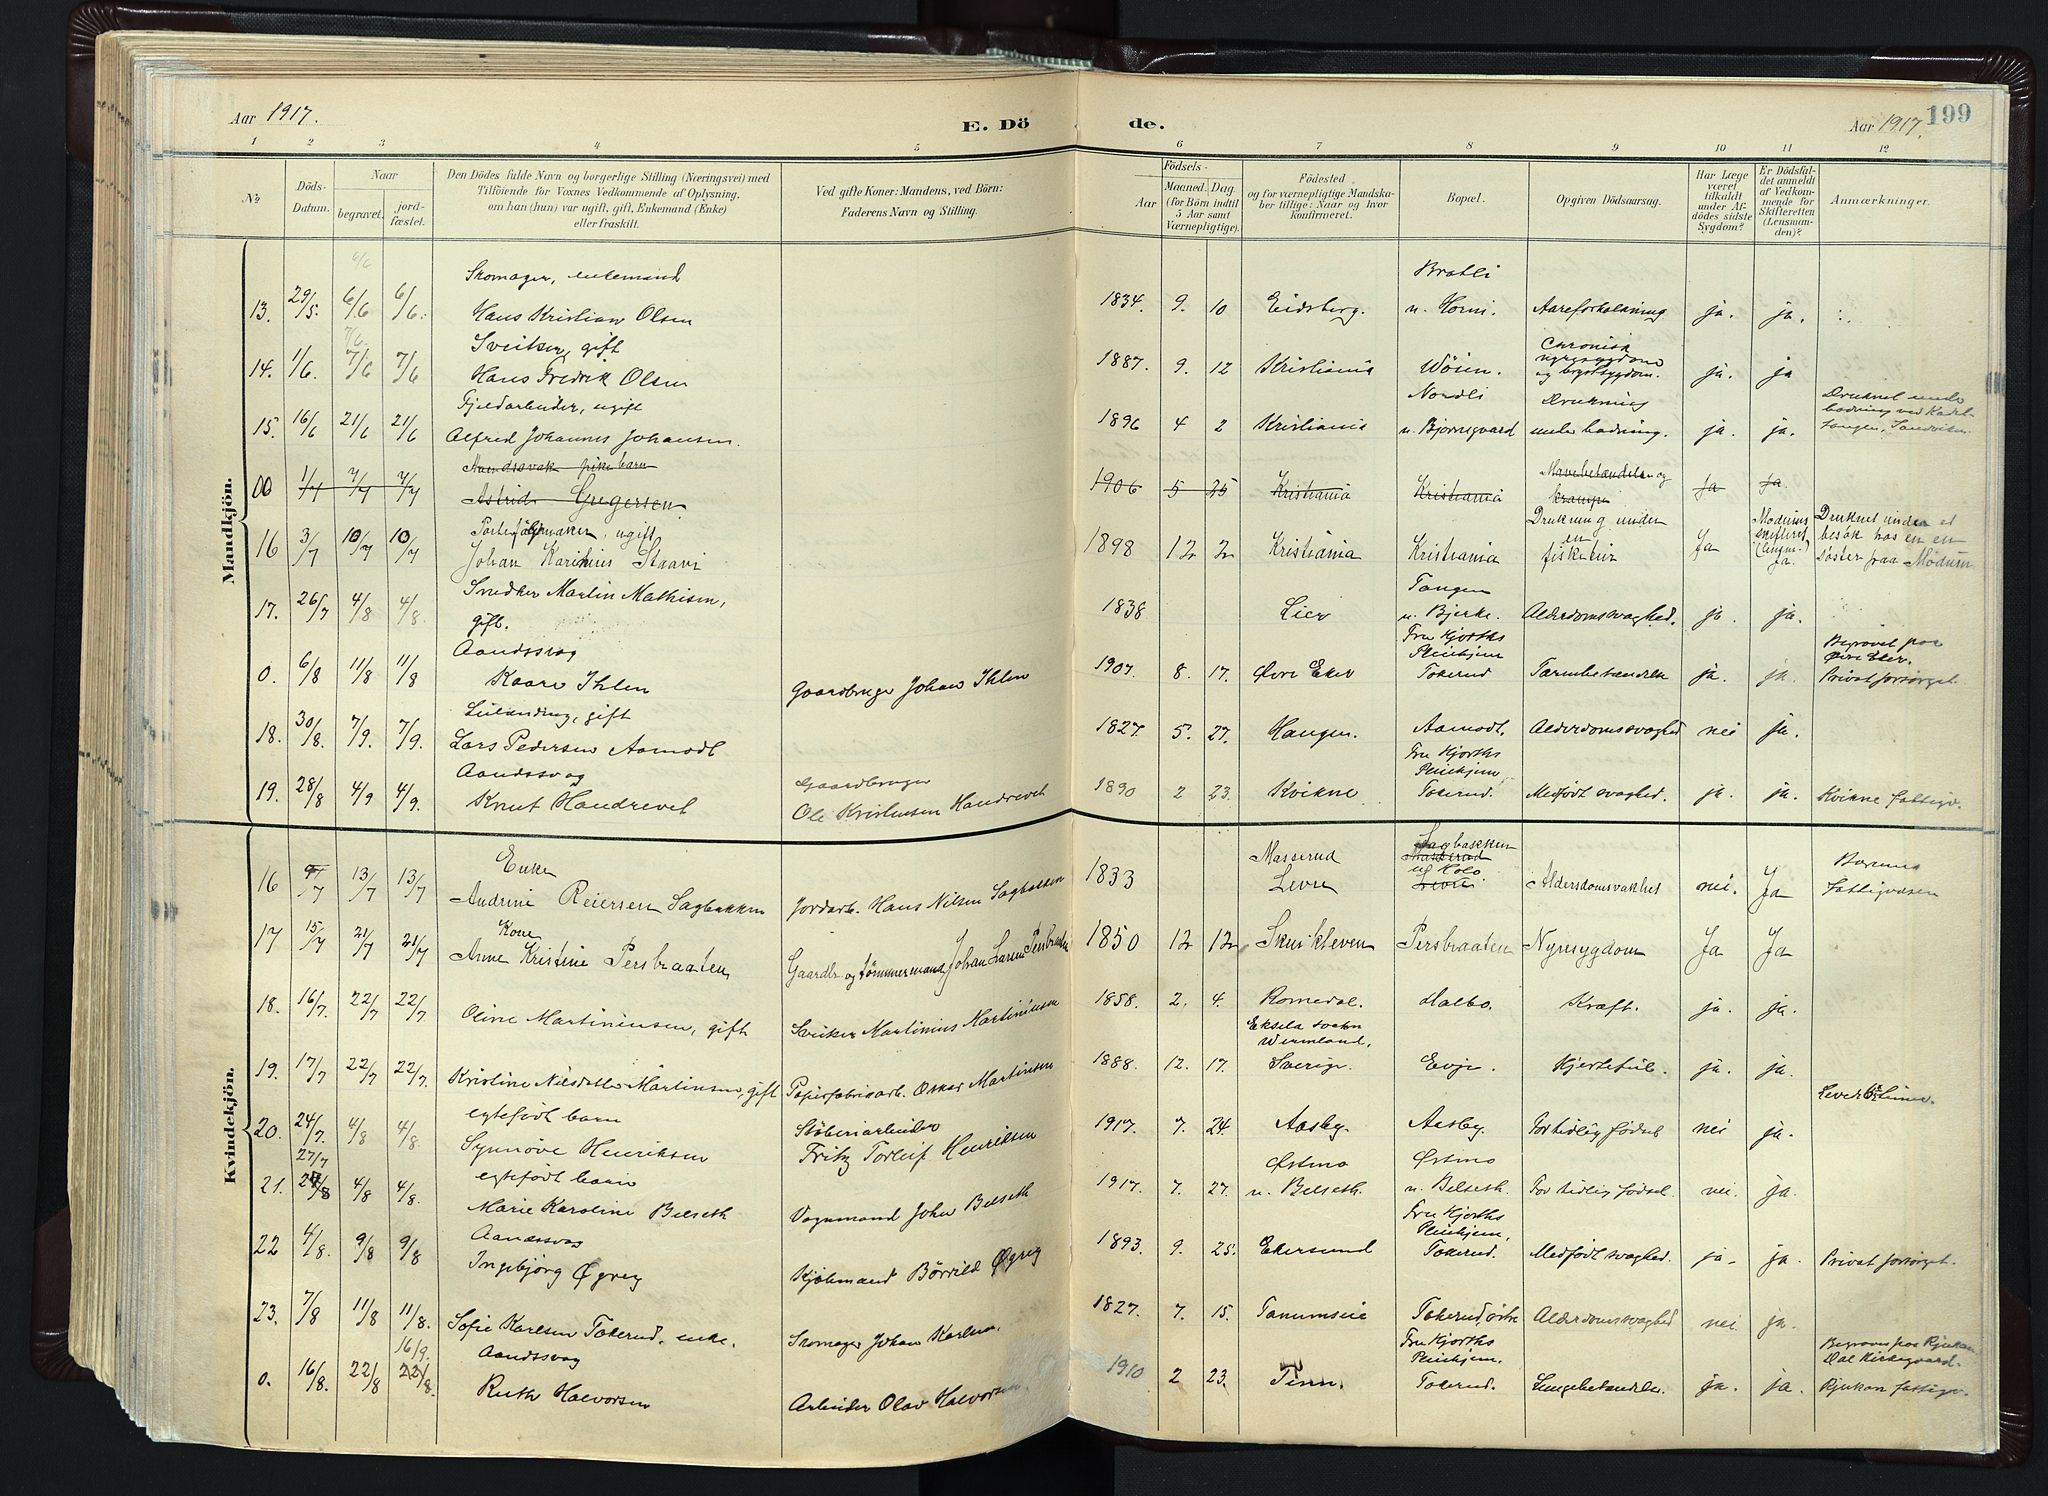 Aar 1917.
E. Dö
de.
Aar 1917.
199
1 2 3 4 5 6 7 8 9 10 11 12
No
Döds-
Datum.
Naar
begravet.
jord-
fæstet.
Den Dödes fulde Navn og borgerlige Stilling (Næringsvei) med
Tilföiende for Voxnes Vedkommende af Oplysning,
om han (hun) var ugift, gift, Enkemand (Enke)
eller fraskilt.
Ved gifte Koner: Mandens, ved Börn:
Faderens Navn og Stilling.
Födsels-
Aar
Maaned.
Dag.
(for Börn indtil
5 Aar samt
Værnepligtige).
Födested
og for værnepligtige Mandska-
ber tillige: Naar og hvor
konfirmeret.
Bopæl.
Opgiven Dödsaarsag.
Har Læge
været
tilkaldt
under Af-
dödes sidste
Sygdom?
Er Dödsfal-
det anmeldt
af Vedkom-
mende for
Skifteretten
(Lensman-
den)?
Anmærkninger.
Mandkjön.
6/6 Skomager, enkemand Bratli
13. 29/5. 6/6 6/6. Hans Kristian Olsen 1834. 9. 10 Eidsberg. u. Horni. Aareforkalkning ja. ja.
7/6. Sveitser, gift Chronisk
14. 1/6. 7/6 7/6 Hans Fredrik Olsen 1887. 9. 12 Kristiania Wöien. nyresygdom og brystsygdom. ja. ja
Fjeldarbeider, ugift Nordli Drukning Druknet under
15. 16/6 21/6 21/6 Alfred Johannes Johansen. 1896 4 2 Kristiania u. Bjornegaard under badning. ja. ja. badning ved Kadet-
tangen, Sandviken
Aandssvak pike barn Mavebetændelse og
00 1/7 7/7 7/7 Astrid Gregersen 1906 5 25 Kristiania Kristiania krampe Ja Ja.
ugift Drukning under Modums Druknet under et
16 3/7 10/7 10/7 Johan Staavi 1898 12 2 Kristiania Kristiania en fisketur Ja skifteret Ja. besøk hos en
søster paa Modum
Snedker Martin Mathisen, Tangen
17. 26/7 4/8 4/8. gift. 1838 Lier u. Bjerke. Alderdomssvaghed. ja. ja.
Aandssvag Fru Kjorths Pleiehjem Begravet paa Øvre Eker.
0. 6/8 11/8 11/8 Kaare Ihlen Gaardbruger Johan Ihlen 1907. 8. 17. Øvre Eker Tokerud Tarmbetændelse ja. ja. Privat forsørget.
gift
18. 30/8. 7/9. 7/9. Lars Pedersen Aamodt 1827. 5. 27. Haugen. Aamodt. Alderdomssvaghed nei ja.
Aandssvag Gaardbruger Fru Kjorths Pleiehjem
19. 28/8 4/9 4/9. Knut Haudrevet Ole Kristensen Haudrevet 1890 2 23. Kvikne Tokerud. Medfødt svaghed. ja. ja. Kvikne fattigv.
Kvindekjön.
Enke Masserud Sagbakken Masserud Bærums
16 9/7 13/7 13/7 Andrine Reiersen Sagbakken Jordarb. Hans Nilsen Sagbakken 1833 Levre u/ Kolo Levre. Aldersdomsvakhet nei. Ja Fattigvæsen
Kone
17 15/7 21/7 21/7 Anne Kristine Persbraaten Gaardbr og tømmermand Johan Larsen Persbraaten 1850 12 12 Skuikleven Persbraaten Nyresygdom Ja Ja
18. 16/7. 22/7 22/7 Oline Martiniussen, gift Martinius Martiniussen 1858. 2. 4. Romedal. Halbo. Kræft. ja. ja.
Eksela sokn Wermland,
19. 17/7 22/7 22/7. Kristine Nilsdatter Martinsen, gift Papirfabrikarb. Oskar Martinsen 1888. 12. 17. Sverige. Evje. Hjertefeil. ja. ja.
egtefødt barn Støberiarbeider
20. 24/7. 4/8 4/8. Synnøve Henriksen Fritz Torleif Henriksen 1917. 7. 24. Aasby. Aasby. For tidlig fødsel nei ja.
27/7 egtefødt barn Østmo Østmo
21. 4/8 4/8. Marie Karoline Belseth Vognmand John Belseth 1917. 7. 27. u. Belseth. u. Belseth. For tidlig fødsel. nei. ja.
Aandssvag Fru Kjorths Pleiehjem,
22 4/8. 9/8 9/8 Ingebjørg Øgrey Kjøbmand Børrild Øgrey 1893. 9. 25. Ekersund Tokerud. Medfødt svaghed. ja. ja. Privat forsørget.
23. 7/8 11/8 11/8. Sofie Karlsen Tokerud, enke. Skomager Johan Karlsen. 1827. 7. 15. Tanumseie Tokerud, østre Alderdomssvaghed nei. ja.
16/9. Aandssvag Fru Kjorths Pleiehjem. Begraves paa Rjukan Dal Kirkegaard.
0. 16/8. 22/8 22/8. Ruth Halvorsen Arbeider Olav Halvorsen. 1910 2 23. Tinn. Tokerud. Lungebetændelse. ja. ja. Rjukan fattigv.